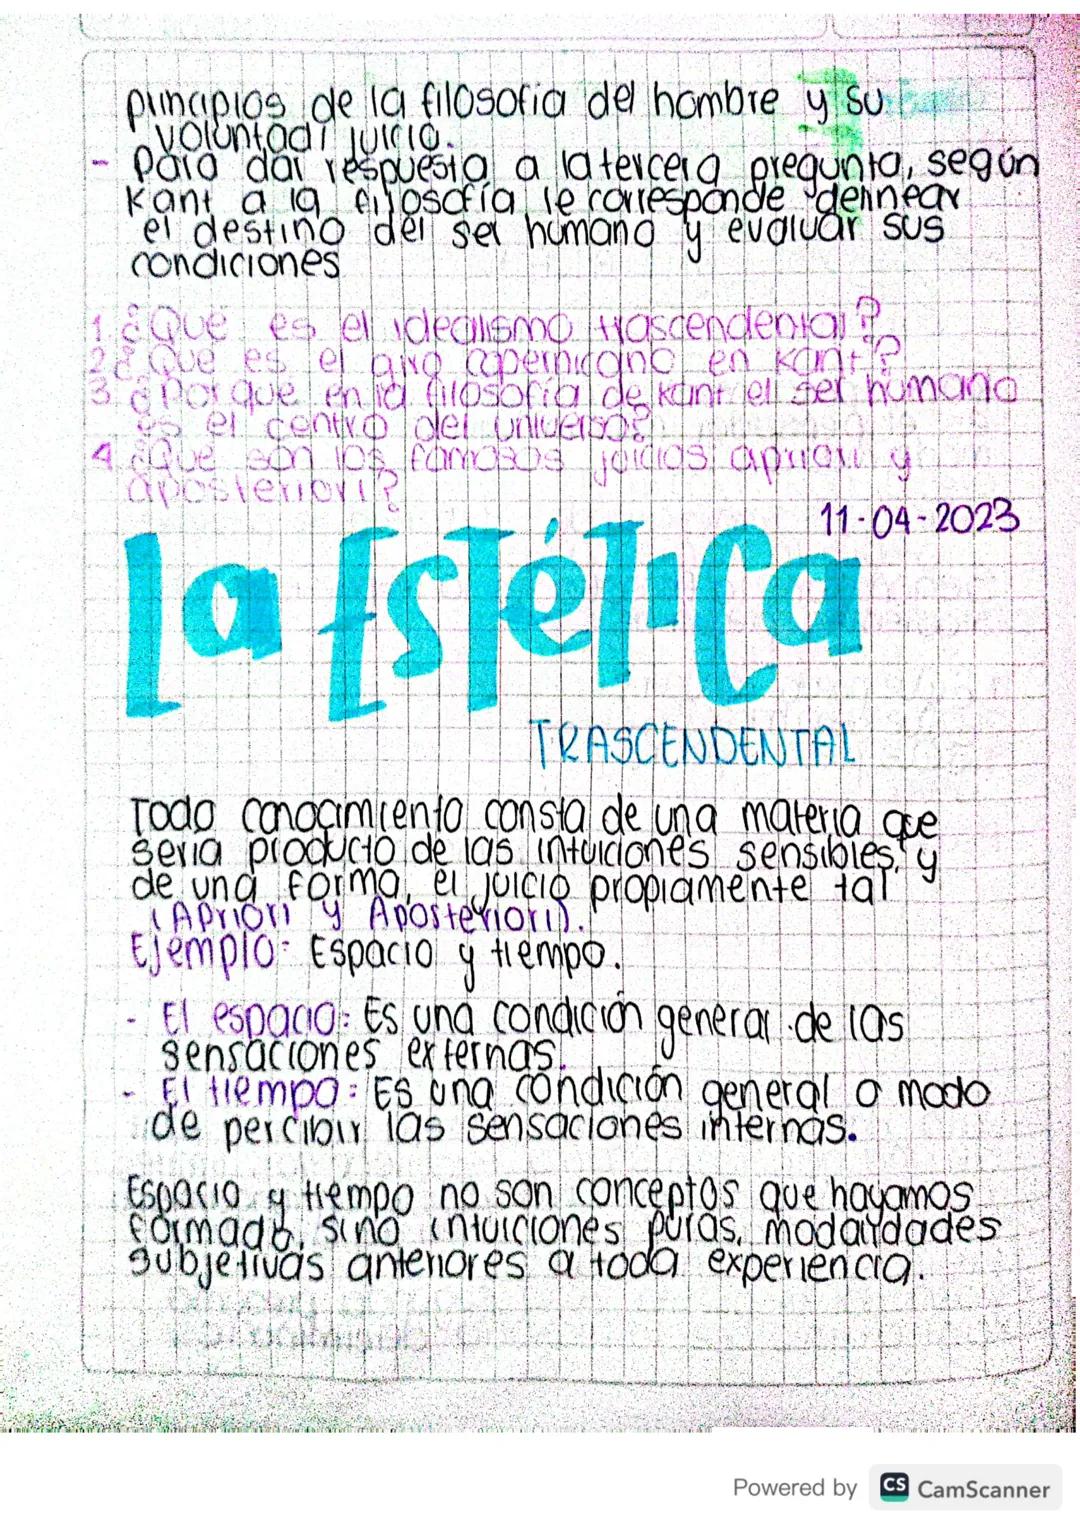 principios de la filosofía del hombre y su
voluntad/juicio.
- Para dar respuesta a la tercera pregunta, según
Kant a la filosofía le corresponde delinear
el destino del ser humano y evaluar sus
condiciones
1. ¿Que es el idealismo trascendental?
2 ¿Que es el giro copernicano en Kant?
3 ¿Por que en la filosofía de Kant el ser humano
es el centro del universo?
4 ¿Que son los famosos juicios apriori y
aposteriori?
11-04-2023
la Estética
TRASCENDENTAL
Todo conocimiento consta de una materia que
seria producto de las intuiciones sensibles, y
de una forma, el juicio propiamente tal.
(Apriori y Aposteriori).
Ejemplo: Espacio y tiempo.
- El espacio: Es una condición general de las
sensaciones externas.
- El tiempo: Es una condición general o modo
de percibir las sensaciones internas.
Espacio y tiempo no son conceptos que hayamos
formado, sino intuiciones puras, modalidades
subjetivas anteriores a toda experiencia.
Powered by CS CamScanner